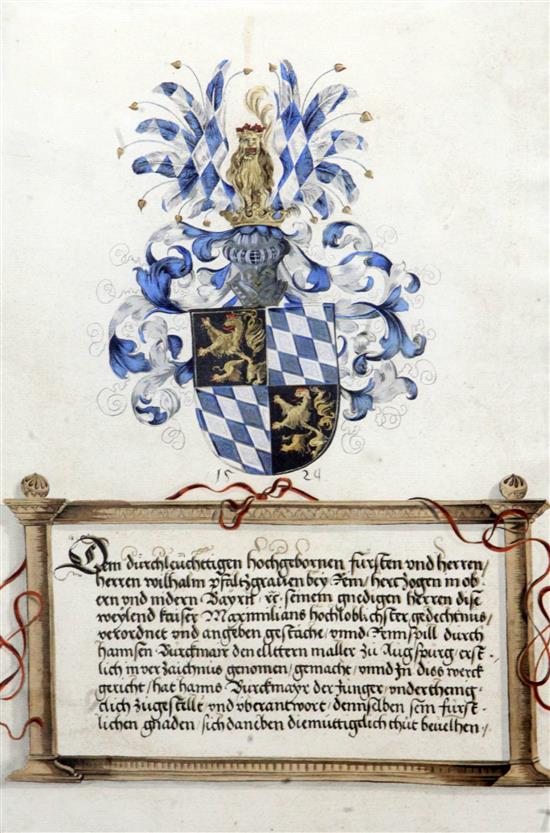 15 24
Dem durchleuchttigen hochgebornen fursten vnd herren/
herren wilhalm pfaltzgrauen bey Rein/ hertzogen in ob-
ern vnd nidern Bayrn/ ꝛc. seinem gnedigen herren dise
weylend kaiser Maximilians hochloblichster gedechtnus/
verordnet vnd angeben gestäche/ vnnd Rennspill durch
hannsen Burckmair den elltern maller zu Augspurg/ erst-
lich in verzaichnus genomen/ gemacht/ vnnd in diss werck
gericht/ hat hanns Burckmayr der Junger/ vnderthenig-
clich zugestellt vnd vberantwort/ demselben sein fürst-
lichen gnaden/ sich daneben diemüttigclich thüt beuelhen/